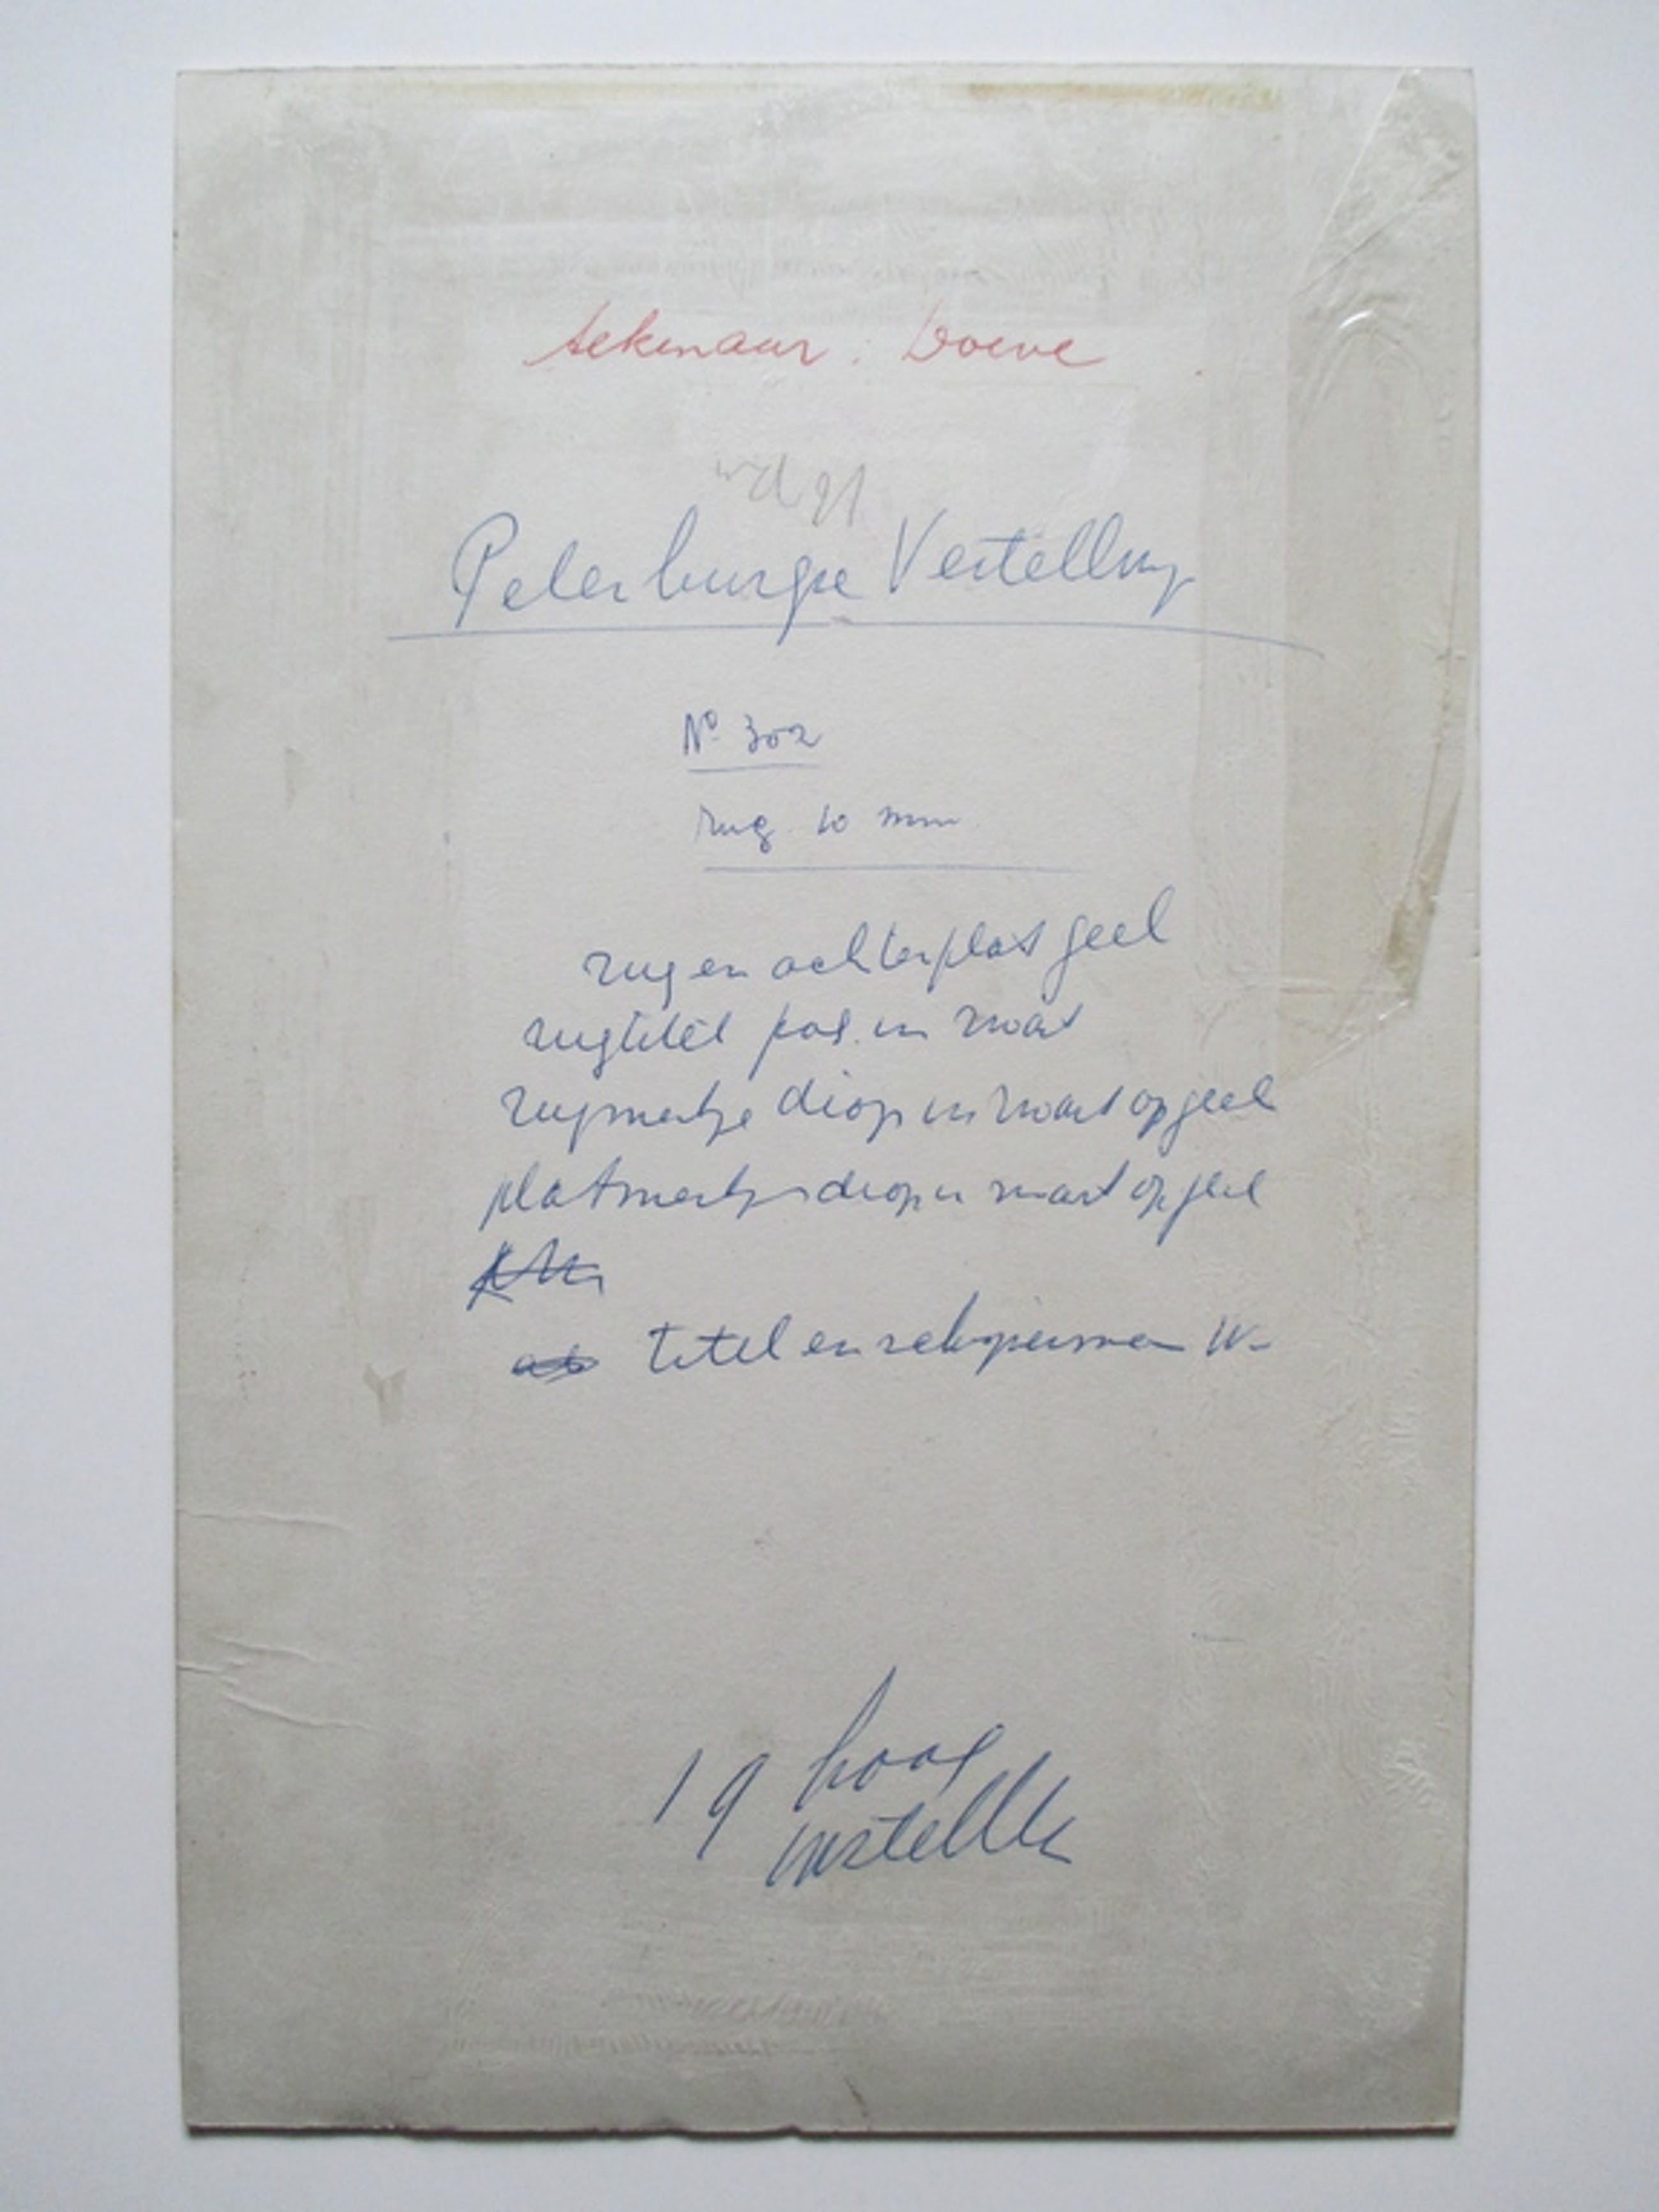 tekenaar: Doeve
Petersburgse Vertelling
No 302
rug 10 mm
rug en achterplat geel
rugtitel pos. in zwart
rugmerkje diap in zwart op geel
platmerkje diap in zwart op geel
titel en
19 hoog
instellen